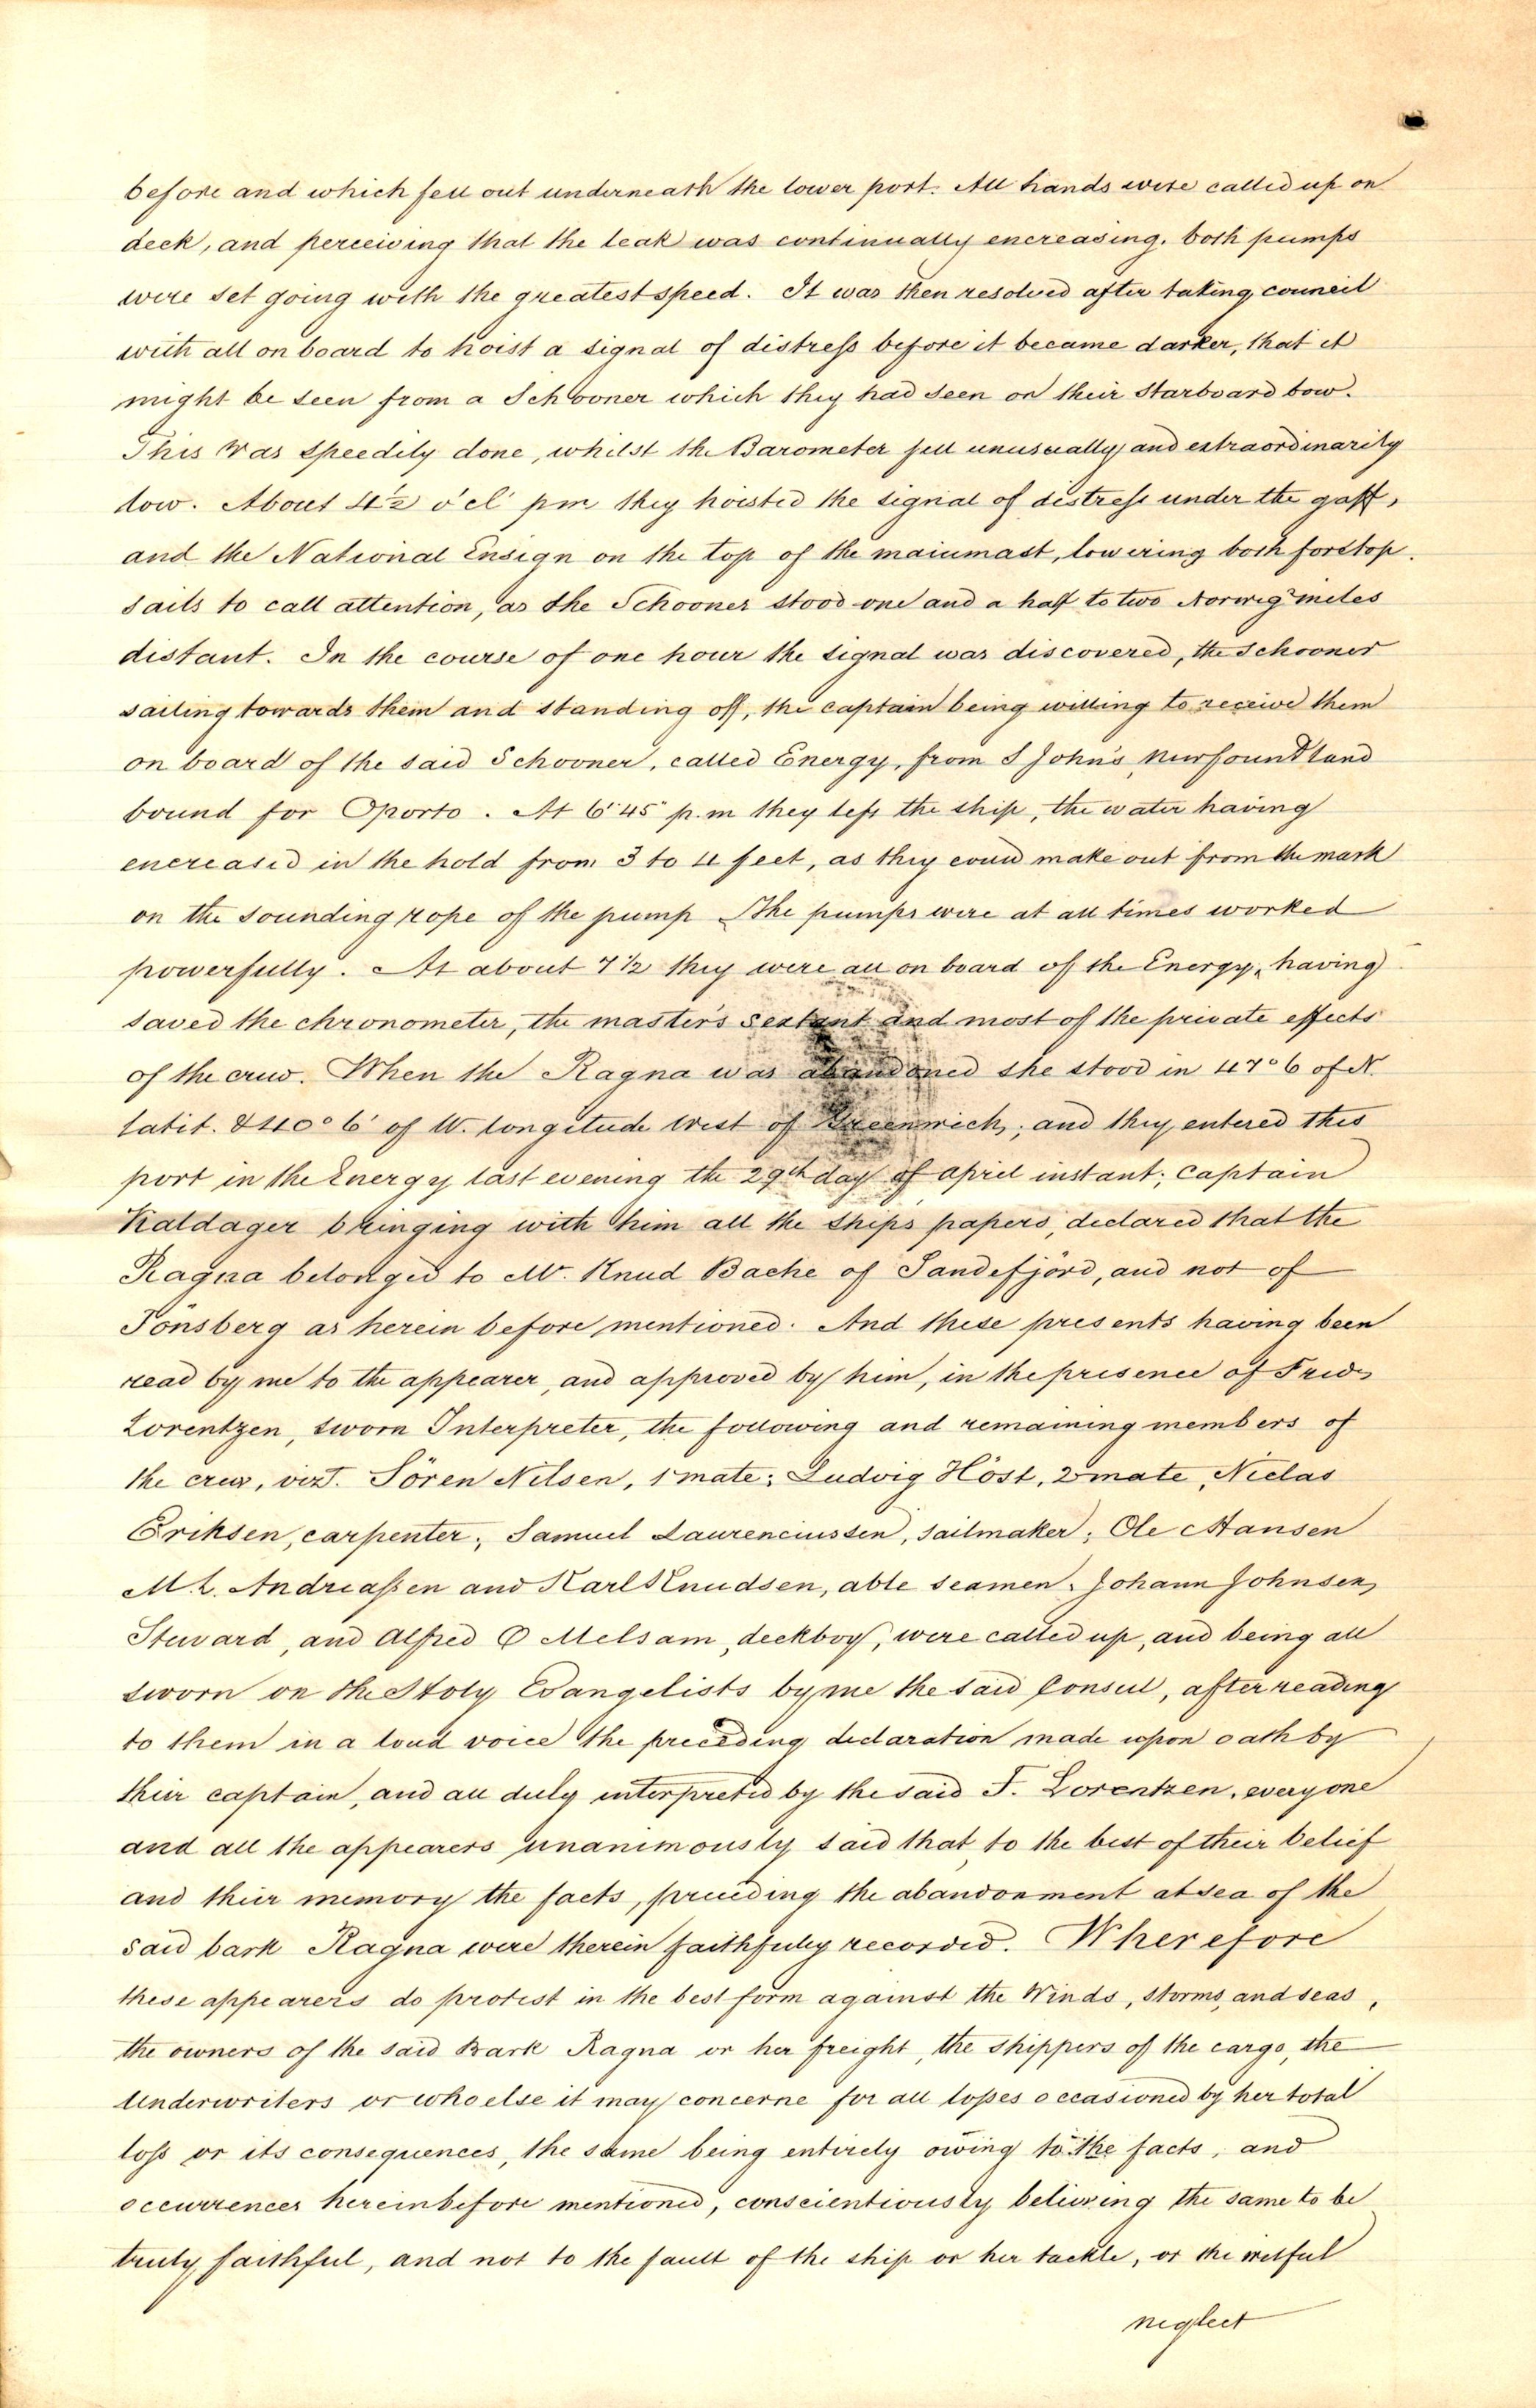 before and which fell out underneath the lower port. All hands were called up on
deck, and perceiving that the leak was continually encreasing. both pumps
were set going with the greatest speed. It was then resolved after taking council
with all on board to hoist a signal of distress before it became darker, that it
might be seen from a Schooner which they had seen on their Starboard bow.
This was speedily done, whilst the Barometer fell unusually and extraordinarily
low. About 4½ o'cl' pm they hoisted the signal of distress under the gaff,
and the National Ensign on the top of the mainmast, lowering both forstop.
sails to call attention, as the Schooner stood one and a half to two Norwegn miles
distant. In the course of one hour the signal was discovered, the Schooner
sailing towards them and standing off, the captain being willing to receive them
on board of the said Schooner, called Energy, from S John's Newfoundland
bound for Oporto. At 6'45" p.m they left the ship, the water having
encreased in the hold from 3 to 4 feet, as they could make out from the mark
on the sounding rope of the pump The pumps were at all times worked
powerfully. At about 7½ they were all on board of the Energy, having
saved the chronometer, the master's sextant and most of the private effects
of the crew. When the Ragna was abandoned she stood in 47°6 of N.
latit. & 40°6' of W. longitude West of Greenwich; and they entered this
port in the Energy last evening the 29th day of april instant; Captain
Kaldager bringing with him all the ships papers, declared that the
Ragna belonged to Mr. Knud Bache of Sandefjörd, and not of
Tönsberg as herein before mentioned. And these presents having been
read by me to the appearer, and approved by him, in the presence of Fried
Lorentzen, sworn Interpreter, the following and remaining members of
the crew, vizt. Sören Nilsen, 1 mate; Ludvig Höst, 2 mate, Niclas
Eriksen, carpenter; Samuel Laurenciussen, sailmaker; Ole Hansen
M. L. Andreassen and Karl Knudsen, able seamen. Johann Johnsen,
Steward, and Alfred O Melsam, deckboy, were called up, and being all
sworn on the Holy Evangelists by me the said Consul, after reading
to them in a loud voice the preceding declaration made upon oath by
their captain, and all duly interpreted by the said F. Lorentzen, every one
and all the appearers unanimously said that, to the best of their belief
and their memory the facts, preceding the abandonment at sea of the
said bark Ragna were therein faithfully recorded. Wherefore
these appearers do protest in the best form against the Winds, storms, and seas,
the owners of the said Bark Ragna or her freight, the shippers of the cargo, the
Underwriters or who else it may concerne for all losses occasioned by her total
loss or its consequences, the same being entirely owing to the facts, and
occurrences hereinbefore mentioned, conscientiously believing the same to be
truly faithful, and not to the fault of the ship or her tackle, or the wilful
neglect